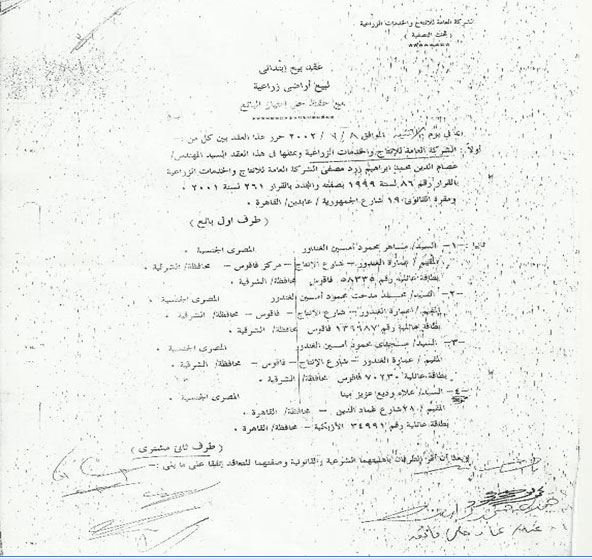 الشركة العامة للانتاج والخدمات الزراعية
( تحت التصفية )
عقد بيع إبتدائى
لبيع أراضى زراعية
مع حفظ حق امتياز البائع
انه فى يوم الموافق ٨ / ٧ / ٢٠٠٢ حرر هذا العقد بين كل من :
أولا : الشركة العامة للإنتاج والخدمات الزراعية ويمثلها فى هذا العقد السيد المهندس/
عصام الدين محمد ابراهيم مصفى الشركة العامة للانتاج والخدمات الزراعية
بالقرار رقم ٨٦ لسنة ١٩٩٩ بصفته والمجدد بالقرار ٢٦١ لسنة ٢٠٠١ .
ومقره القانونى ١٩ شارع الجمهورية / عابدين/ القاهرة .
( طرف اول بائع )
ثانيا : ١- السيد/ ماهر محمود أمين الغندور المصرى الجنسية .
المقيم / عمارة الغندور – شارع الانتاج – مركز فاقوس – محافظة/ الشرقية .
بطاقة عائلية رقم ٥٨٣٣٥ فاقوس محافظة/ الشرقية .
٢- السيد/ محمد مدحت محمود أمين الغندور المصرى الجنسية .
المقيم / عمارة الغندور – شارع الانتاج – فاقوس – محافظة/ الشرقية .
بطاقة عائلية رقم ١٣٩٩٨٧ فاقوس محافظة/ الشرقية .
٣- السيد/ محمود أمين الغندور المصرى الجنسية .
المقيم / عمارة الغندور – شارع الإنتاج – فاقوس – محافظة/ الشرقية .
بطاقة عائلية رقم ٧٠٢٣٠ فاقوس محافظة/ الشرقية .
٤- السيد/ علاء وديع عزيز مينا المصرى الجنسية .
المقيم / ٢٨ شارع عماد الدين – محافظة/ القاهرة .
بطاقة عائلية رقم ٣٤٩٩١ الأزبكية – محافظة/ القاهرة .
( طرف ثانى مشترى )
وبعد أن أقر الطرفان بأهليتهما الشرعية والقانونية وصفتهما للتعاقد إتفقا على ما يلى :–